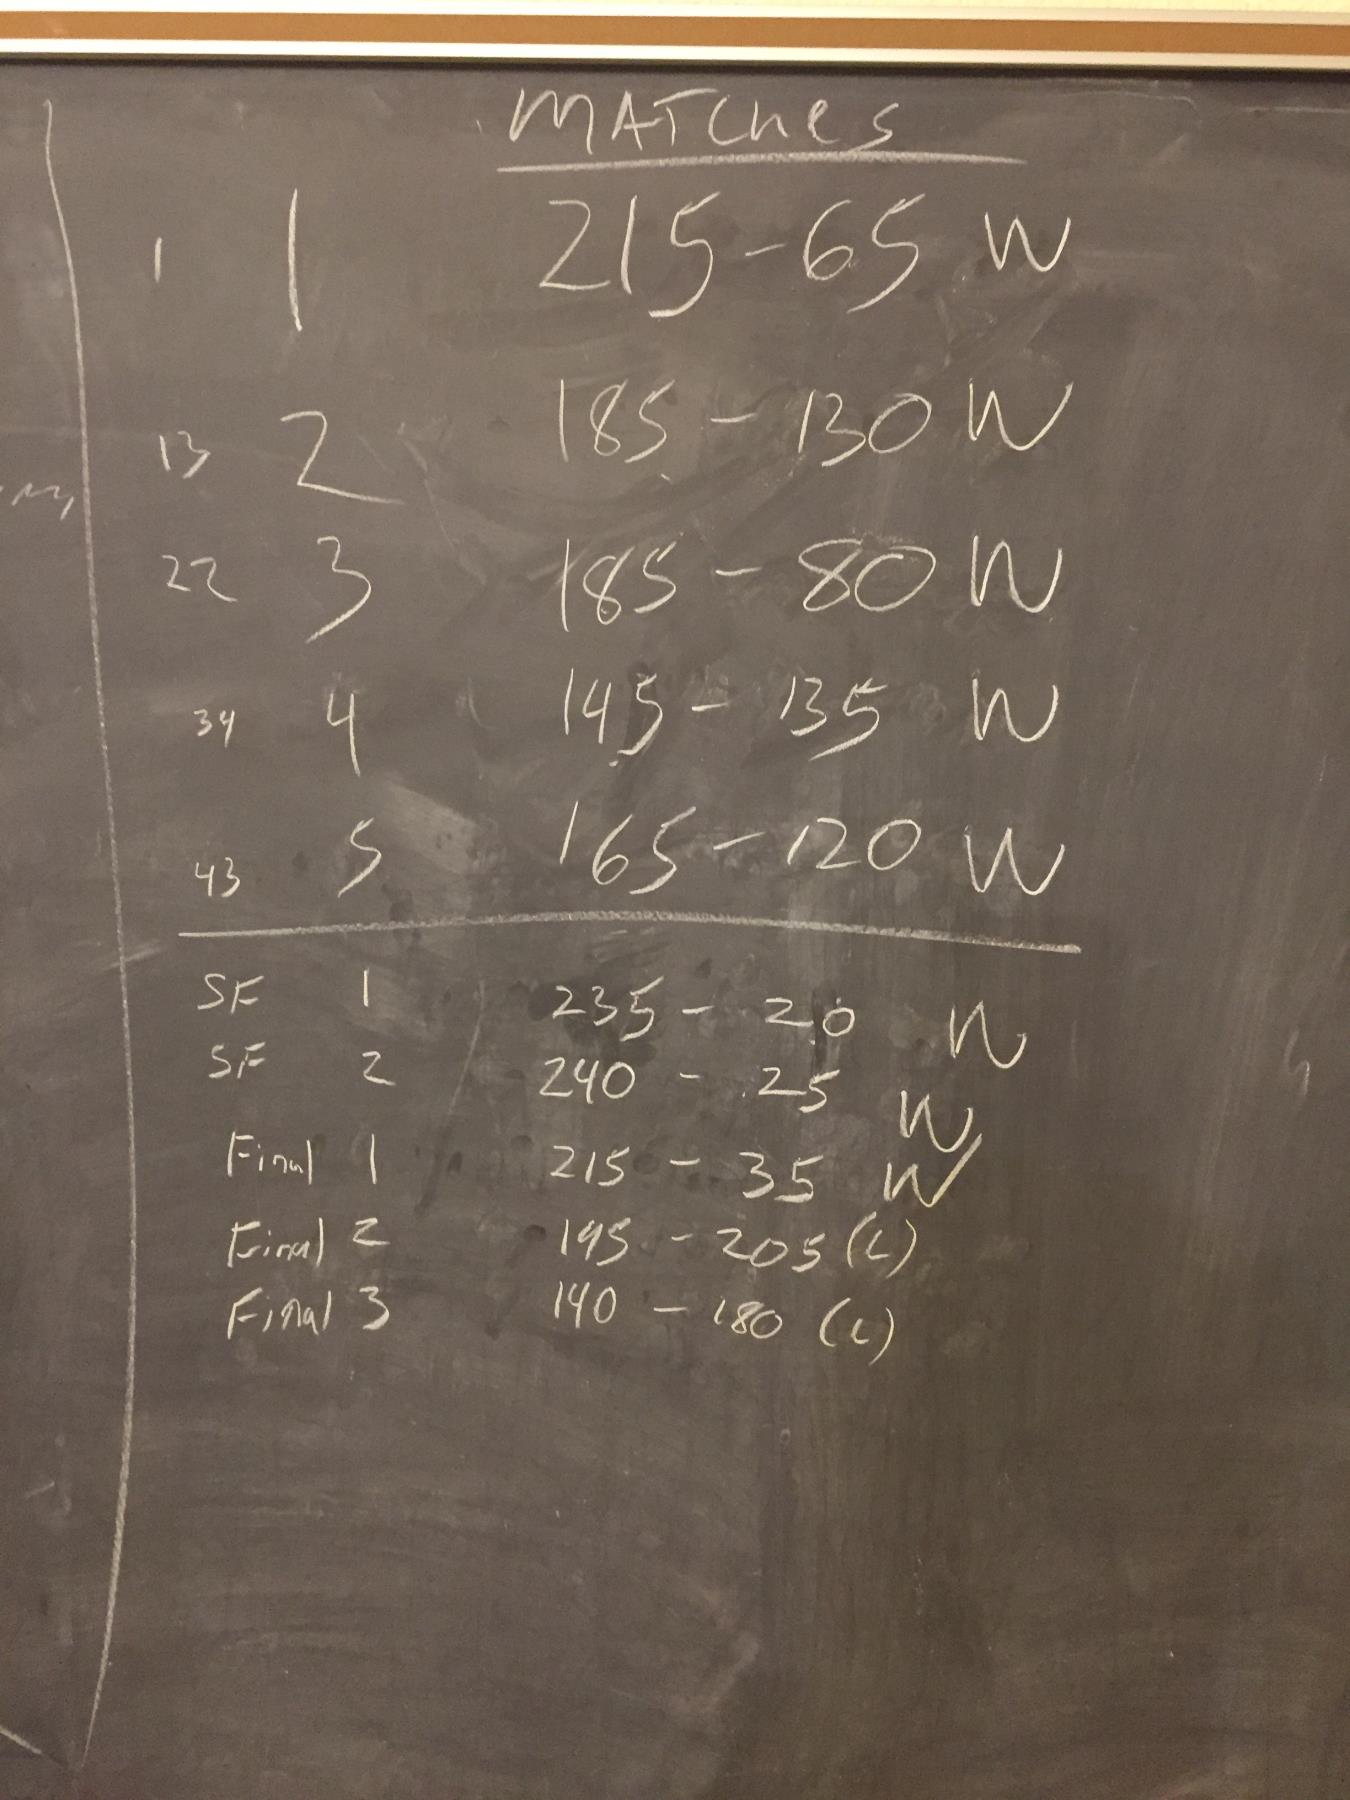 MATches
1 1 215-65 W
13 2 185-130 W
22 3 185-80 W
34 4 145-135 W
43 5 165-120 W
SF 1 235-20 W
SF 2 240-25 W
Final 1 215-35 W
Final 2 195-205 (L)
Final 3 140-180 (L)